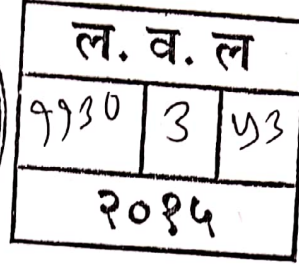 ल. व. ल
११३० 3 ५३
२०१५